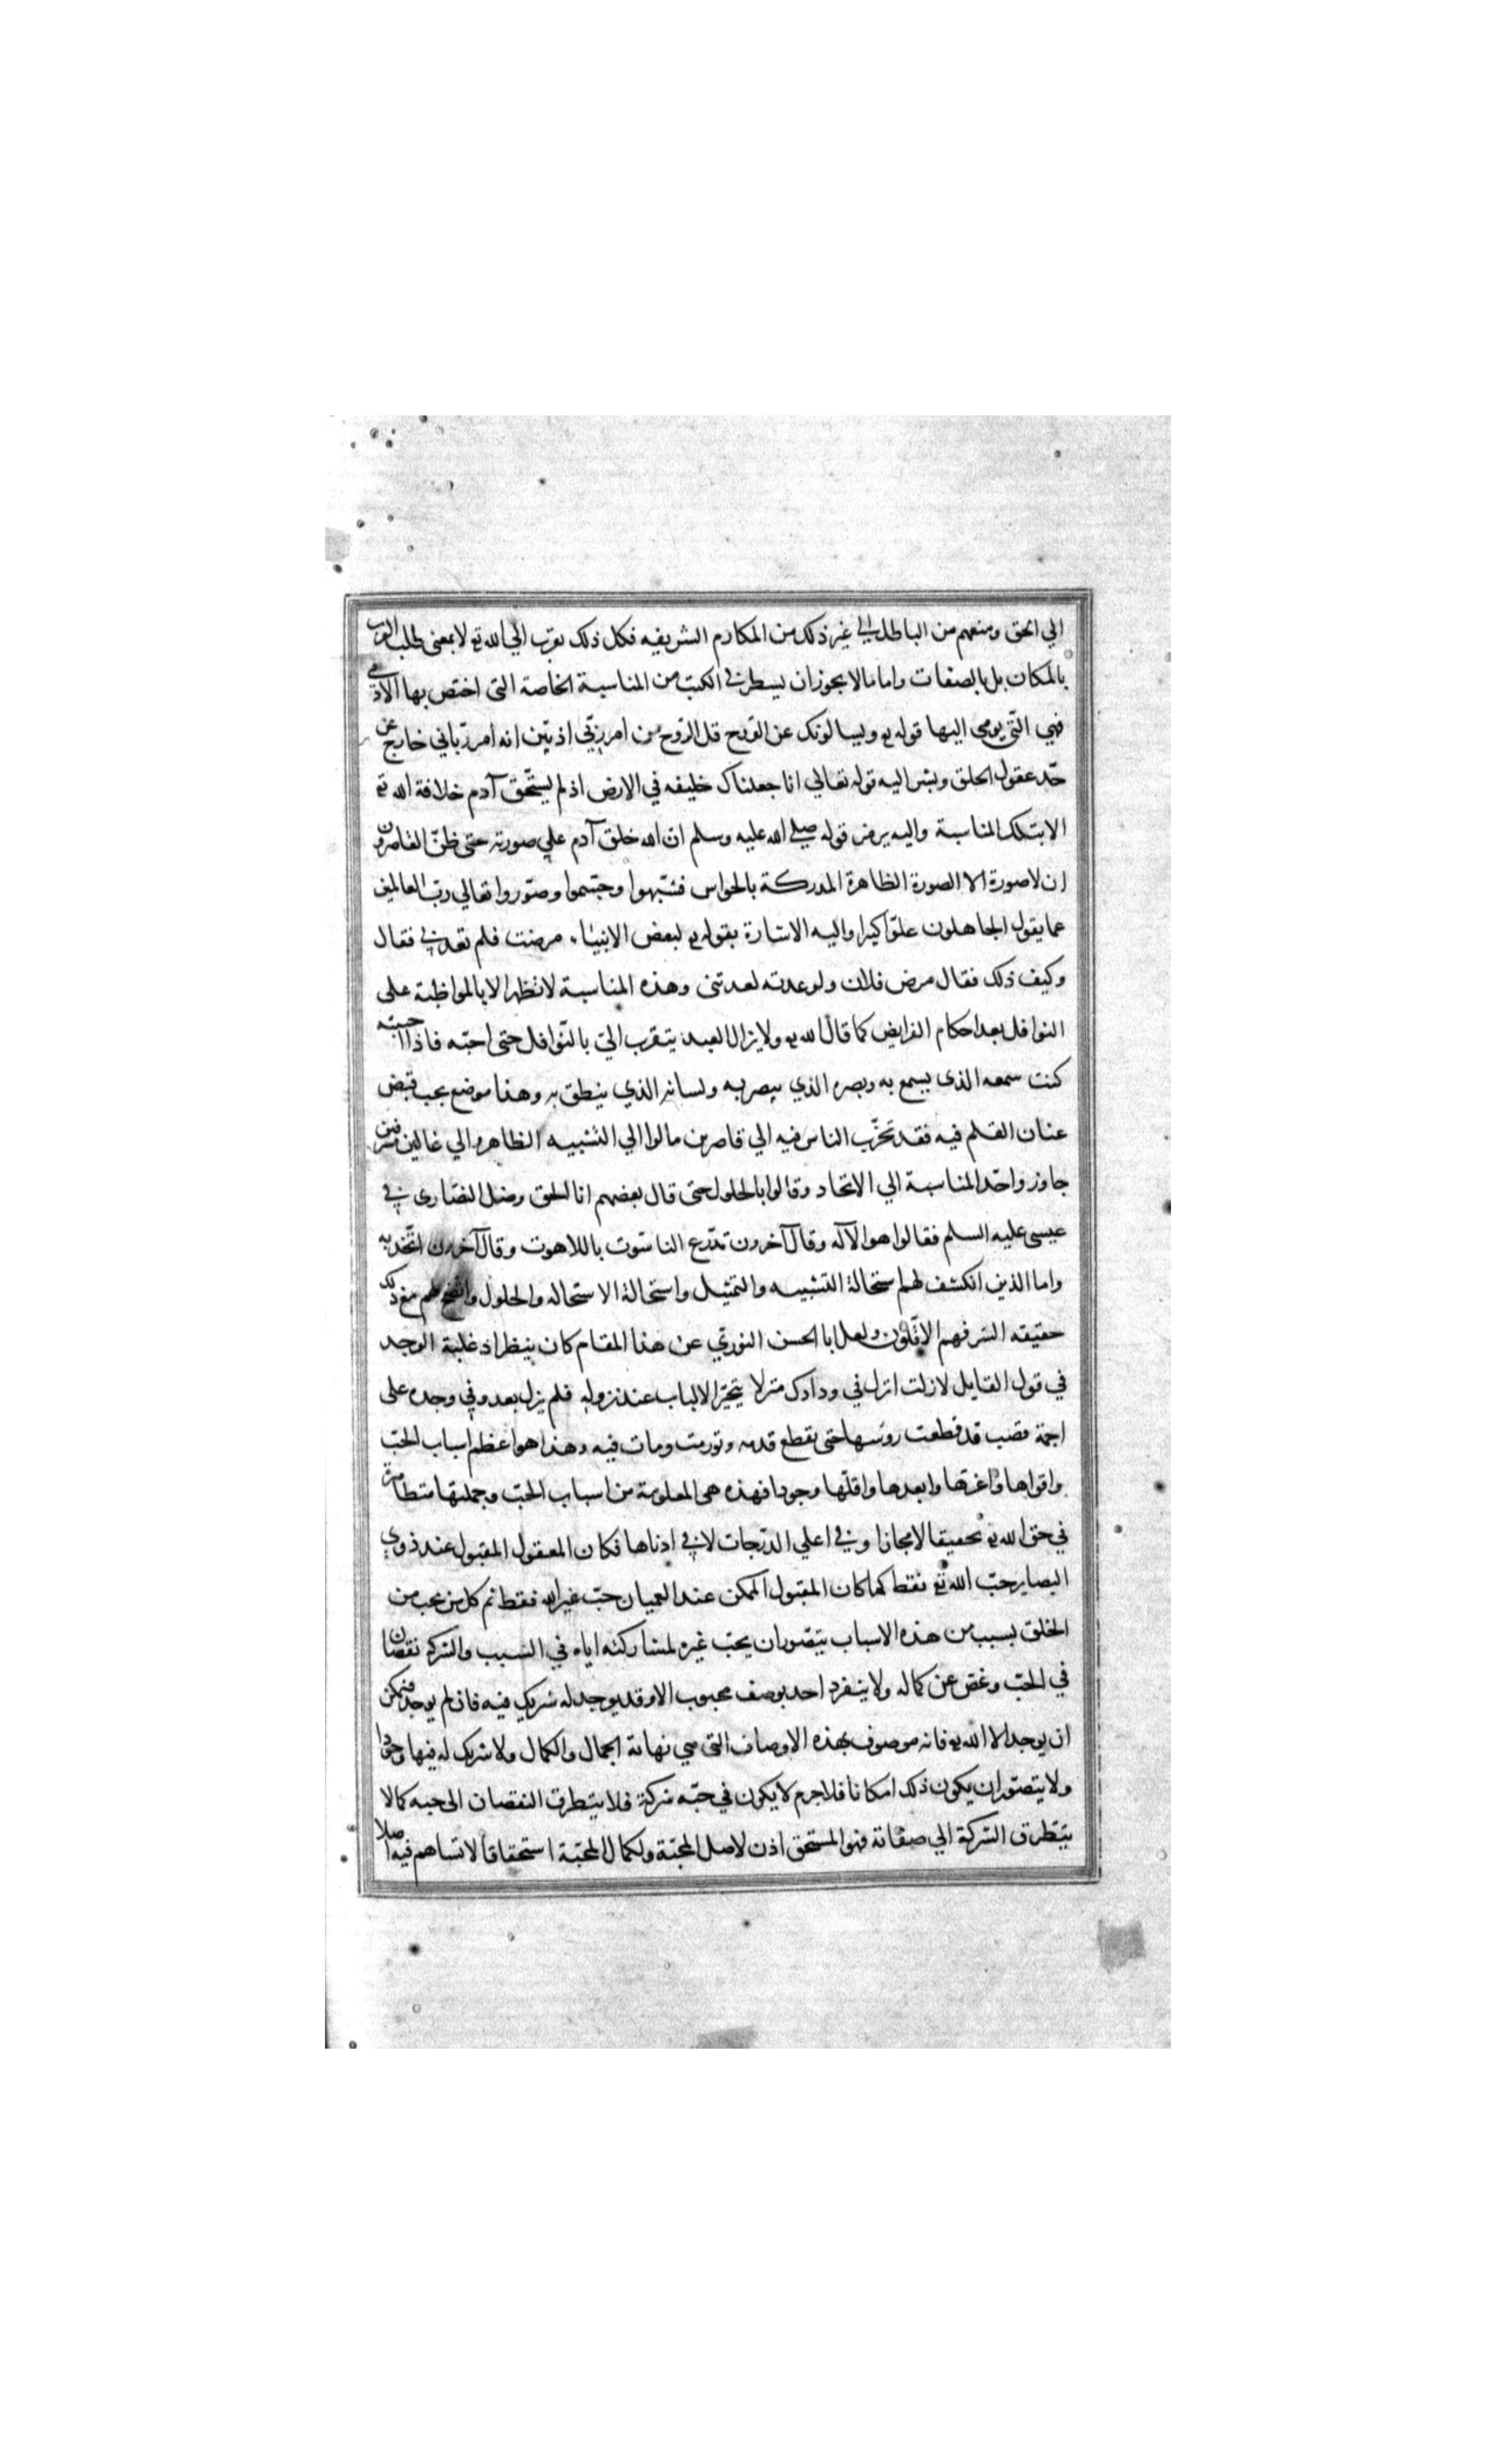 الي الحق ومنعهم من الباطل الي غير ذلك من المكارم الشريفه فكل ذلك يقرب الي الله تع لا بمعني طلب القرب
بالمكان بل بالصفات واما مالا يجوز ان يسطر في الكتب من المناسبة الخاصة التي اختص بها الآدمي
فهي التّي يومي اليها قوله تع ويسالونك عن الرّوح قل الرّوح من امر ربّي اذ بيّن انه امر ربّاني خارج عن
حّد عقول الخلق ويشير اليه قوله تعالي انا جعلناك خليفه في الارض اذ لم يستحّق آدم خلافة الله تع
الا بتلك المناسبة واليه يرمز قوله صلي الله عليه وسلم ان الله خلق آدم علي صورته حتي ظنّ القاصرون
ان لا صورة الا الصورة الظاهرة المدركة بالحواس فشبّهوا وجسّموا وصوّروا تعالي ربّ العالمين
عما يقول الجاهلون علوّا كبيرا واليه الاشارة بقوله تع لبعض الانبياء مرضت فلم تعدني فقال
وكيف ذلك فقال مرض فلان ولو عدته لعدتني وهذه المناسبة لا تظهر الا بالمواظبة علي
النوافل بعد احكام الفرايض كما قال الله تع ولا يزال العبد يتقرب اليّ بالنّوافل حتي احبّه فاذا احببته
كنت سمعه الذي يسمع به وبصره الذي يبصر به ولسانه الذي ينطق به وهذا موضع يجب قبض
عنان القلم فيه فقد تحزّب الناس فيه الي قاصرين مالوا الي التشبيه الظاهر والي غالين مسرفين
جاوزوا حدّ المناسبة الي الاتحاد وقالوا بالحلول حتي قال بعضهم انا الحق وضل النصاري في
عيسي عليه السلم فقالوا هو الآله وقال آخرون تدّرع الناسوت باللاهوت وقال آخرون اتّحد به
واما الذين انكشف لهم استحالة التشبيه والتمثيل واستحالة الاستحاله والحلول واتضح لهم مع ذلك
حقيقه السّر فهم الاقّلون ولعل ابا الحسن النوري عن هذا المقام كان ينظر اذ غلبة الوجد
في قول القايل لا زلت انزل في ودادك منزلا يتحيّر الالباب عند نزوله فلم يزل يعدو في وجده علي
اجمة قصب قد قطعت روسها حتي يقطع قدمه وتورمت ومات فيه وهذا هو اعظم اسباب الحبّ
واقواها واعزها وابعدها واقلّها وجودا فهذه هي المعلومة من اسباب الحبّ وجملتها متظاهرة
في حق الله تع تحقيقا لا مجازا وفي اعلي الدرّجات لا في ادناها فكان المعقول المقبول عند ذوي
البصاير حبّ الله تع فقط كما كان المقبول الممكن عند العميان حبّ غير الله فقط ثم كل من يحب من
الخلق بسبب من هذه الاسباب يتصّور ان يحبّ غيره لمشاركته اياه في السّبب والشركه نقصان
في الحبّ وغض عن كماله ولا ينفرد احد بوصف محبوب الا وقد يوجد له شريك فيه فان لم يوجد فممكن
ان يوجد الا الله تع فانه موصوف بهذه الاوصاف التي هي نهاية الجمال والكمال ولا شريك له فيها وجودا
ولا يتصّور ان يكون ذلك امكانا فلا جرم لا يكون في حبّه شركة فلا يتطرق النقصان الي حبه كما لا
يتطرق الشركة الي صفاته فهو المستحق اذن لاصل المحبّة ولكمال المحبّة استحقاقا لا تساهم فيه اصلا